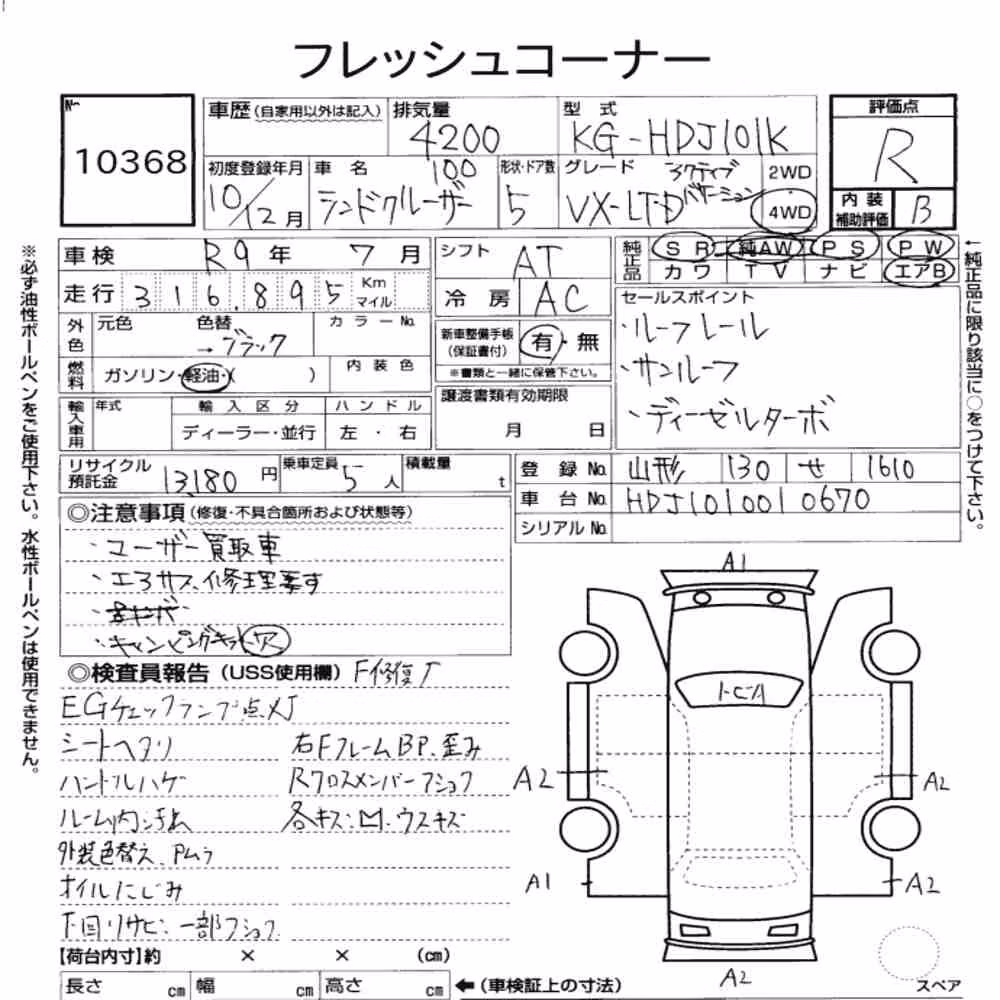 フレッシュコーナー
No
10368
車歴(自家用以外は記入)
排気量
4200
型式
KG-HDJ101K
評価点
R
初度登録年月
10/12月
車名
100
ランドクルーザー
形状・ドア数
5
グレード
アクティブ
バケーション
VX-LTD
2WD
4WD
内装
補助評価
B
車検 R9年 7月
シフト AT
純正品
SR 純AW PS PW
カワ TV ナビ エアB
走行 316,895 Km マイル
冷房 AC
セールスポイント
・ルーフレール
・サンルーフ
・ディーゼルターボ
外色
元色 色替 →ブラック
カラーNo.
新車整備手帳
(保証書付)
有・無
※書類と一緒に保管下さい。
燃料
ガソリン・軽油・( )
内装色
譲渡書類有効期限
月 日
輸入車用
年式
輸入区分
ディーラー・並行
ハンドル
左・右
リサイクル
預託金
13,180円
乗車定員
5人
積載量
t
登録No. 山形 130 せ 1610
車台No. HDJ101 0010670
シリアルNo.
◎注意事項(修復・不具合箇所および状態等)
・ユーザー買取車
・エアサス、修理要す
・キャンピングキット穴
◎検査員報告(USS使用欄) F修復
EGチェックランプ点灯
シートヘタリ 右FフレームBP.歪み
ハンドルハゲ Rクロスメンバーフショク
ルーム内汚 各キズ・凹・ウスキズ
外装色替え、Pムラ
オイルにじみ
下回りサビ、一部フショク
【荷台内寸】約 × × (cm)
長さ cm 幅 cm 高さ cm
←(車検証上の寸法)
A1
A2
A2
A1
A2
A2
スペア
※必ず油性ボールペンをご使用下さい。水性ボールペンは使用できません。
←純正品に限り該当に○をつけて下さい。